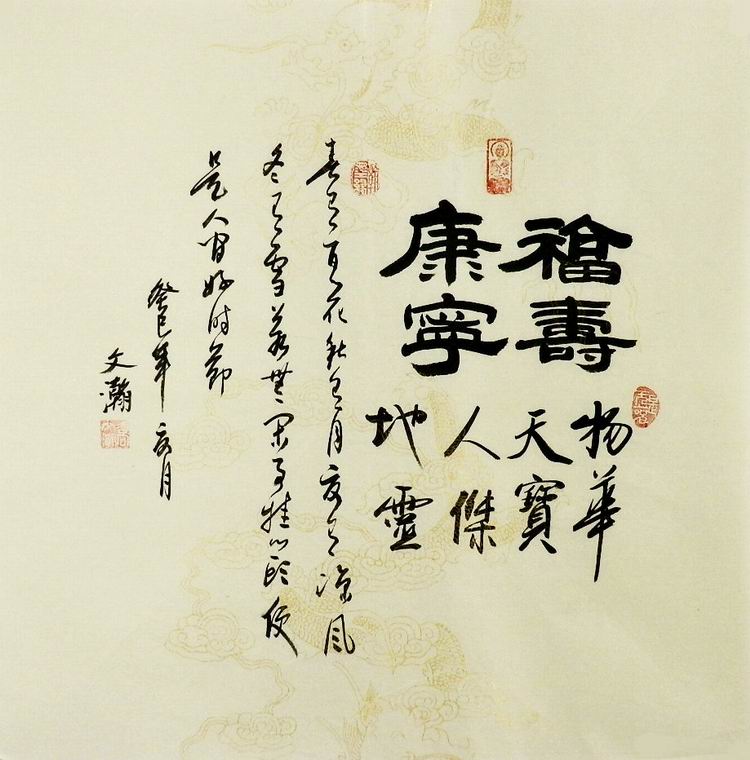 福壽
康寧
物華
天寶
人傑
地靈
春有百花秋有月夏有涼风
冬有雪若無闲事挂心頭便
是人间好时節
癸巳年夏月
文瀚